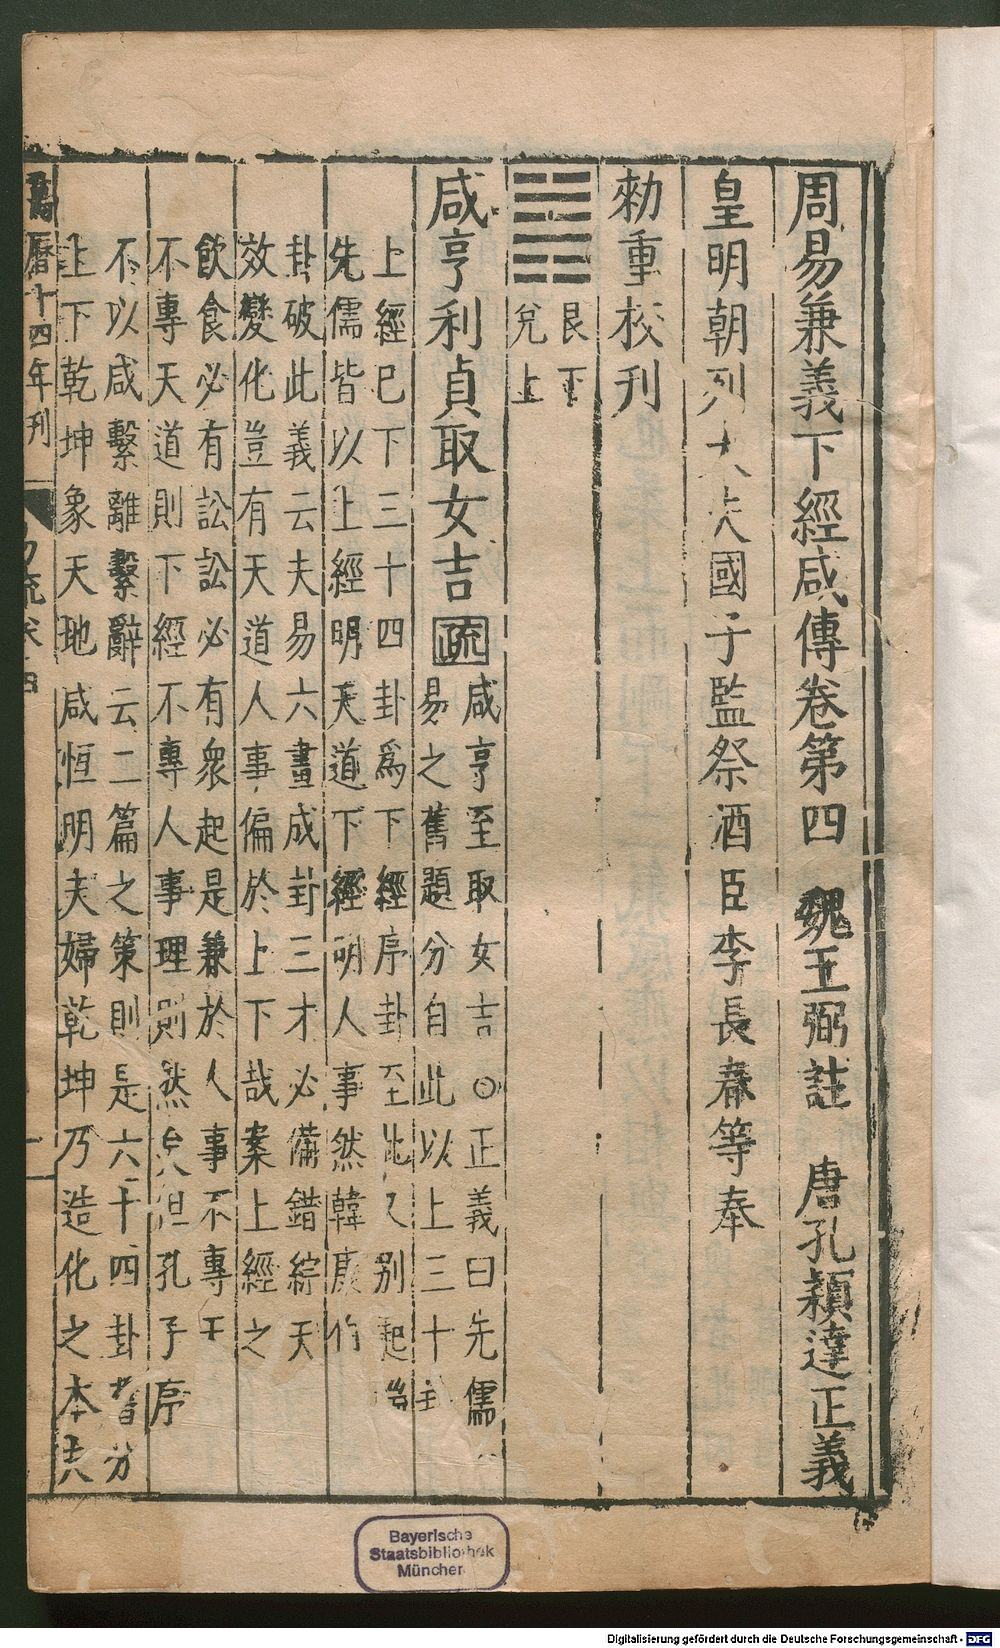 周易兼義下經咸傳卷第四　魏王弼註　唐孔穎達正義
皇明朝列大夫國子監祭酒臣李長春等奉
勑重校刊
艮下
兌上
咸亨利貞取女吉疏咸亨至取女吉○正義曰先儒
易之舊題分自此以上三十
上經已下三十四卦爲下經序卦至此又別起
先儒皆以上經明天道下經明人事然韓康
卦破此義云夫易六畫成卦三才必備錯綜天
效變化豈有天道人事偏於上下哉案上經之
飲食必有訟訟必有衆起是兼於人事不專
不專天道則下經不專人事理則然矣但孔子序
不以咸繫離繫辭云二篇之策則是六十四卦舊分
上下乾坤象天地咸恒明夫婦乾坤乃造化之本夫
萬曆十四年刊
易疏卷四
一
Bayerische
Staatsbibliothek
München
Digitalisierung gefördert durch die Deutsche Forschungsgemeinschaft - DFG